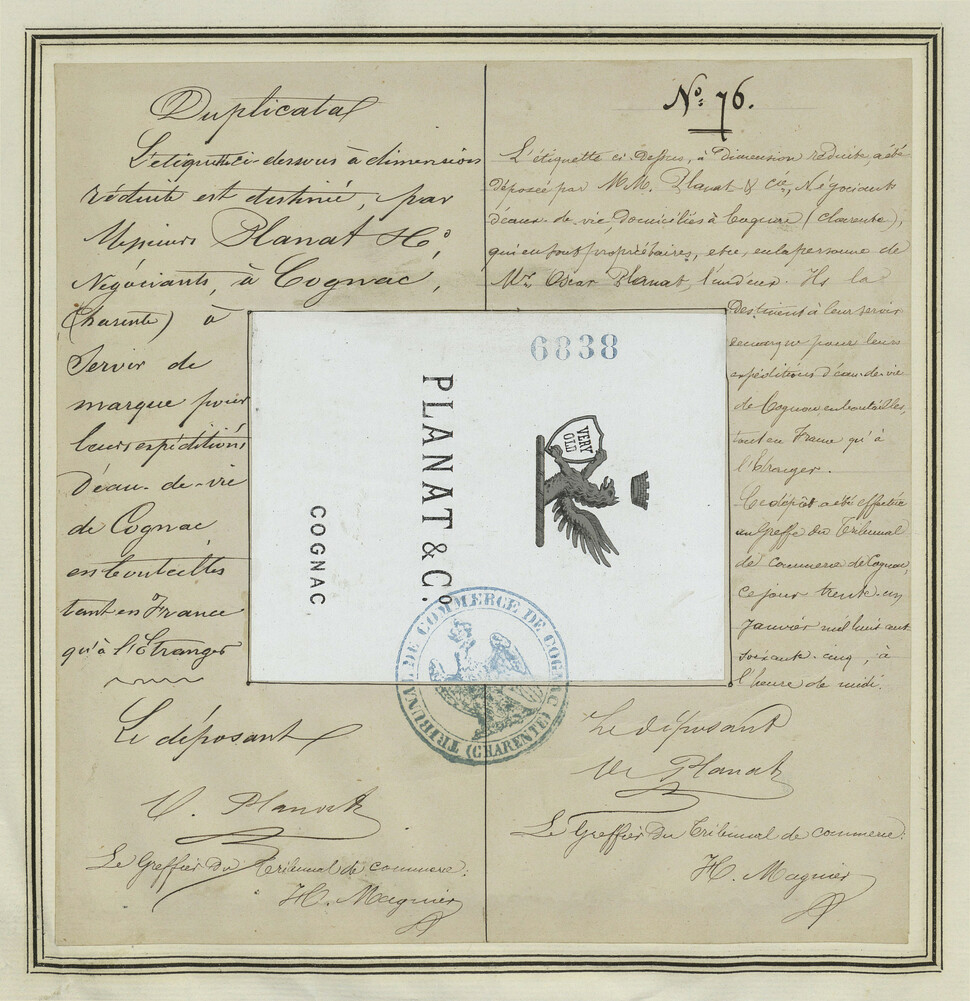 Duplicata
L'étiquette ci-dessous à dimension
réduite est destinée, par
Messieurs Planat & Cº
Négociants, à Cognac,
(Charente) à
Servir de
marque pour
leurs expéditions
D'eau-de-vie
de Cognac
en bouteilles
tant en France
qu'à l'Étranger
Le déposant
O. Planat
Le Greffier Du Tribunal de commerce:
H. Magnier
Nº 76.
L'étiquette ci-dessus, à Dimension réduite, a été
déposée par MM. Planat & Cie, Négociants
d'eaux-de-vie, Domiciliés à Cognac (Charente),
qui en sont propriétaires, et ce, en la personne de
Mr. Oscar Planat, l'un d'eux. Ils la
Destinent à leur servir
de marque pour leurs
expéditions d'eau-de-vie
de Cognac en bouteilles,
tant en France qu'à
l'Etranger.
Ce dépôt a été effectué
au Greffe du Tribunal
de commerce de Cognac,
ce jour trente-un
Janvier mil huit cent
soixante-cinq, à
l'heure de midi.
Le déposant
O. Planat
Le Greffier Du Tribunal de commerce:
H. Magnier
6838
VERY
OLD
PLANAT & Cº.
COGNAC.
TRIBUNAL DE COMMERCE DE COGNAC
(CHARENTE)